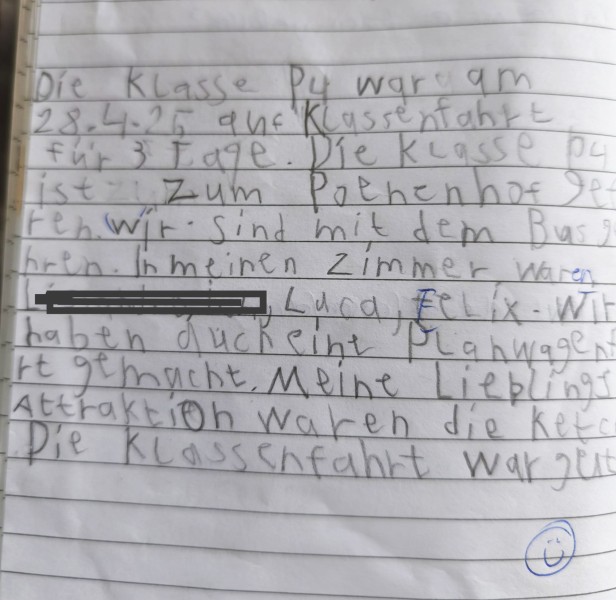 Die Klasse P4 war am
28.4.25 auf Klassenfahrt
für 3 Tage. Die Klasse P4
ist zum Poenenhof gef
ren. Wir sind mit dem Bus g
hren. In meinen Zimmer waren
, Luca, Felix. Wir
haben auch eine Planwagenf
rt gemacht. Meine Lieblings
Attraktion waren die Ketc
Die Klassenfahrt war gut